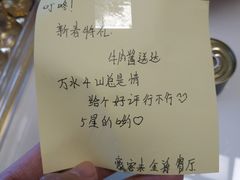 叮咚!
新春特礼
牛肉酱送达
万水千山总是情
给个好评行不行☺
5星的哟♡
客家来金海餐厅